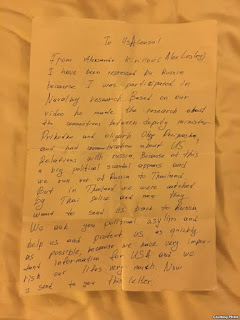 To US Consul
From Alexander Kirillov (Alex Lesley)
I have been repressed by Russia
because I was participated in
Navalny research Based on our
video he made the research about
the connections between deputy minister
Prikhodko and oligarh Oleg Deripaska
and had about US
Relations with russia. Because of this
a big political scandal appears and
we run out of Russia to Thailand
But in Thailand we were catched
by Thai police and now they
want to send us back to Russia
We ask you political asylim and
help us and protect us as quickly
as possible, because we have very impor-
tant information for USA and we
risk our lives very much. Now
I send to you this letter
Courtesy Photo